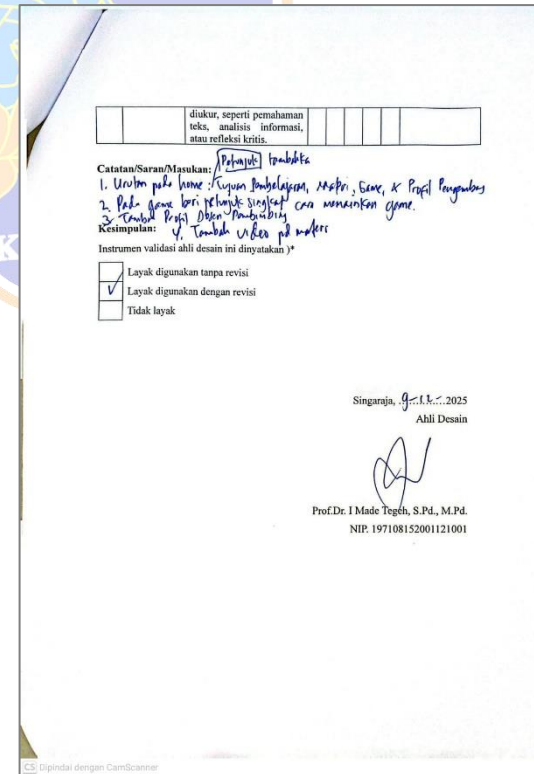 diukur, seperti pemahaman
teks, analisis informasi,
atau refleksi kritis.
Petunjuk
Catatan/Saran/Masukan:
1. Urutan pada home : Tujuan Pembelajaran, Materi, Game, & Profil Pengembang
2. Pada game beri petunjuk singkat cara memainkan game.
3. Tambah Profil Dosen Pembimbing
Kesimpulan: 4. Tambah video pd materi
Instrumen validasi ahli desain ini dinyatakan )*
Layak digunakan tanpa revisi
✓ Layak digunakan dengan revisi
Tidak layak
Singaraja, 9-12-2025
Ahli Desain
Prof.Dr. I Made Tegeh, S.Pd., M.Pd.
NIP. 197108152001121001
CS Dipindai dengan CamScanner